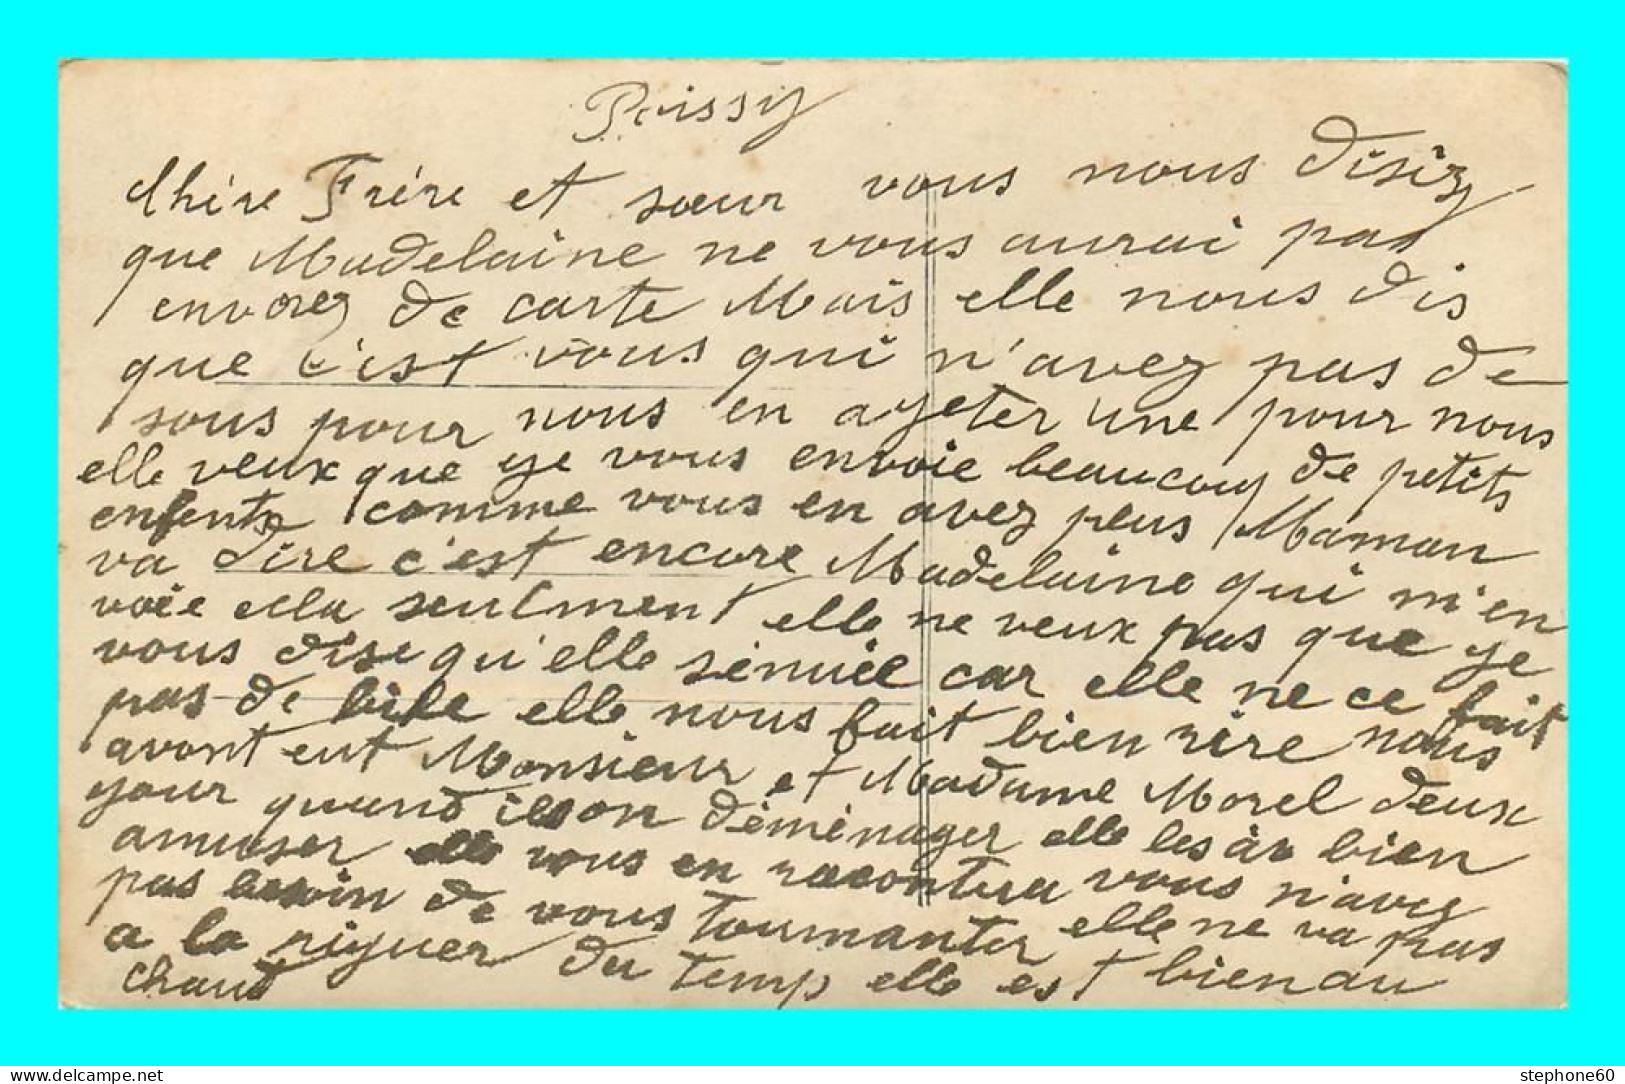 Poissy
Chère Frère et sœur vous nous disiez
que Madelaine ne vous aurai pas
envoiez de carte Mais elle nous dis
que c'est vous qui n'avez pas de
sous pour nous en ageter une pour nous
elle veux que ye vous envoie beaucoup de petits
enfents comme vous en avez peus Maman
va dire c'est encore Madelaine qui m'en
voie ella seulment elle ne veux pas que ye
vous dise qu'elle s'énuiée car elle ne ce fait
pas de bile elle nous fait bien rire nous
avont eut Monsieur et Madame Morel deux
your quand ils on déménager elle les à bien
amuser elle vous en racontera vous n'avez
pas besoin de vous tourmanter elle ne va pas
a la riguer du temp elle est bien au
chaud
delcampe.net
stephone60